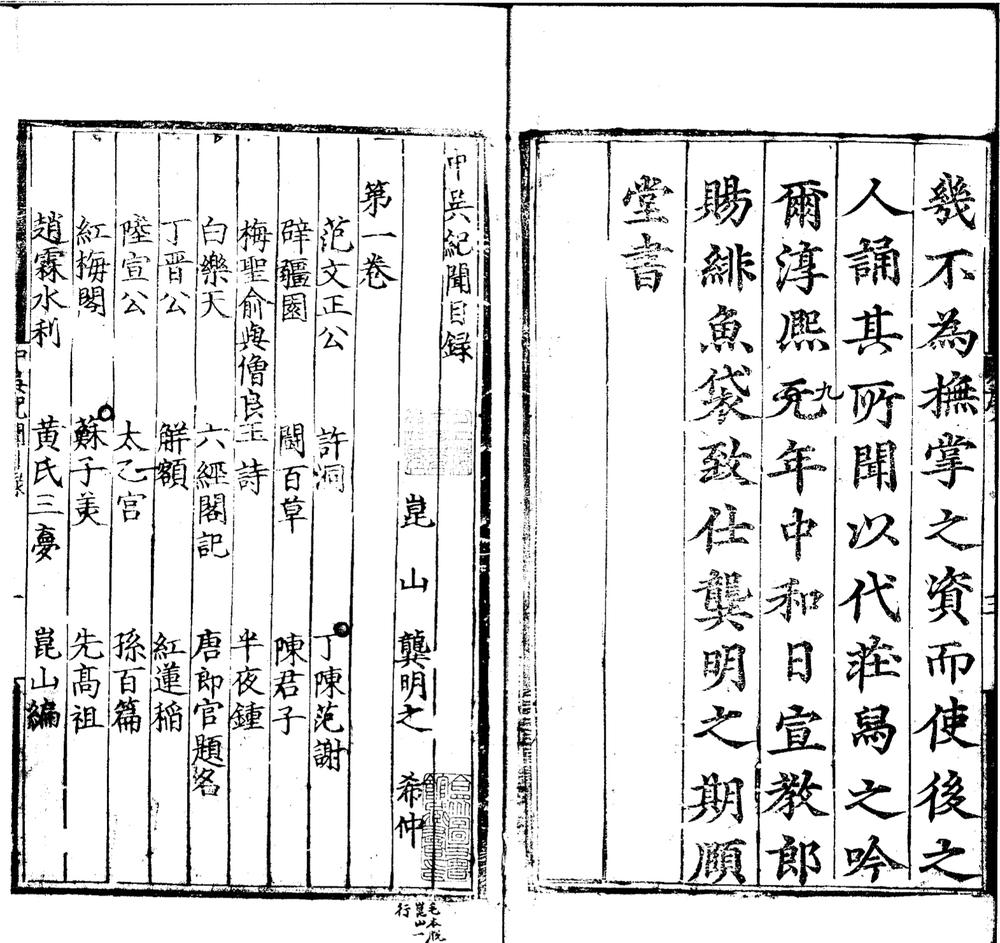 幾不為撫掌之資而使後之
人誦其所聞以代莊舄之吟
爾淳熙元九年中和日宣教郎
賜緋魚袋致仕龔明之期頤
堂書
中吳紀聞目録
崑山 龔明之 希仲
第一卷
范文正公 許洞 丁陳范謝
辟疆園 闘百草 陳君子
梅聖俞與僧良玉詩 半夜鍾
白樂天 六經閣記 唐郎官題名
丁晋公 解額 紅蓮稻
陸宣公 太乙宫 孫百篇
紅梅閣 蘇子美 先髙祖
趙霖水利 黄氏三夢 崑山編
毛本脫
崑山一
行